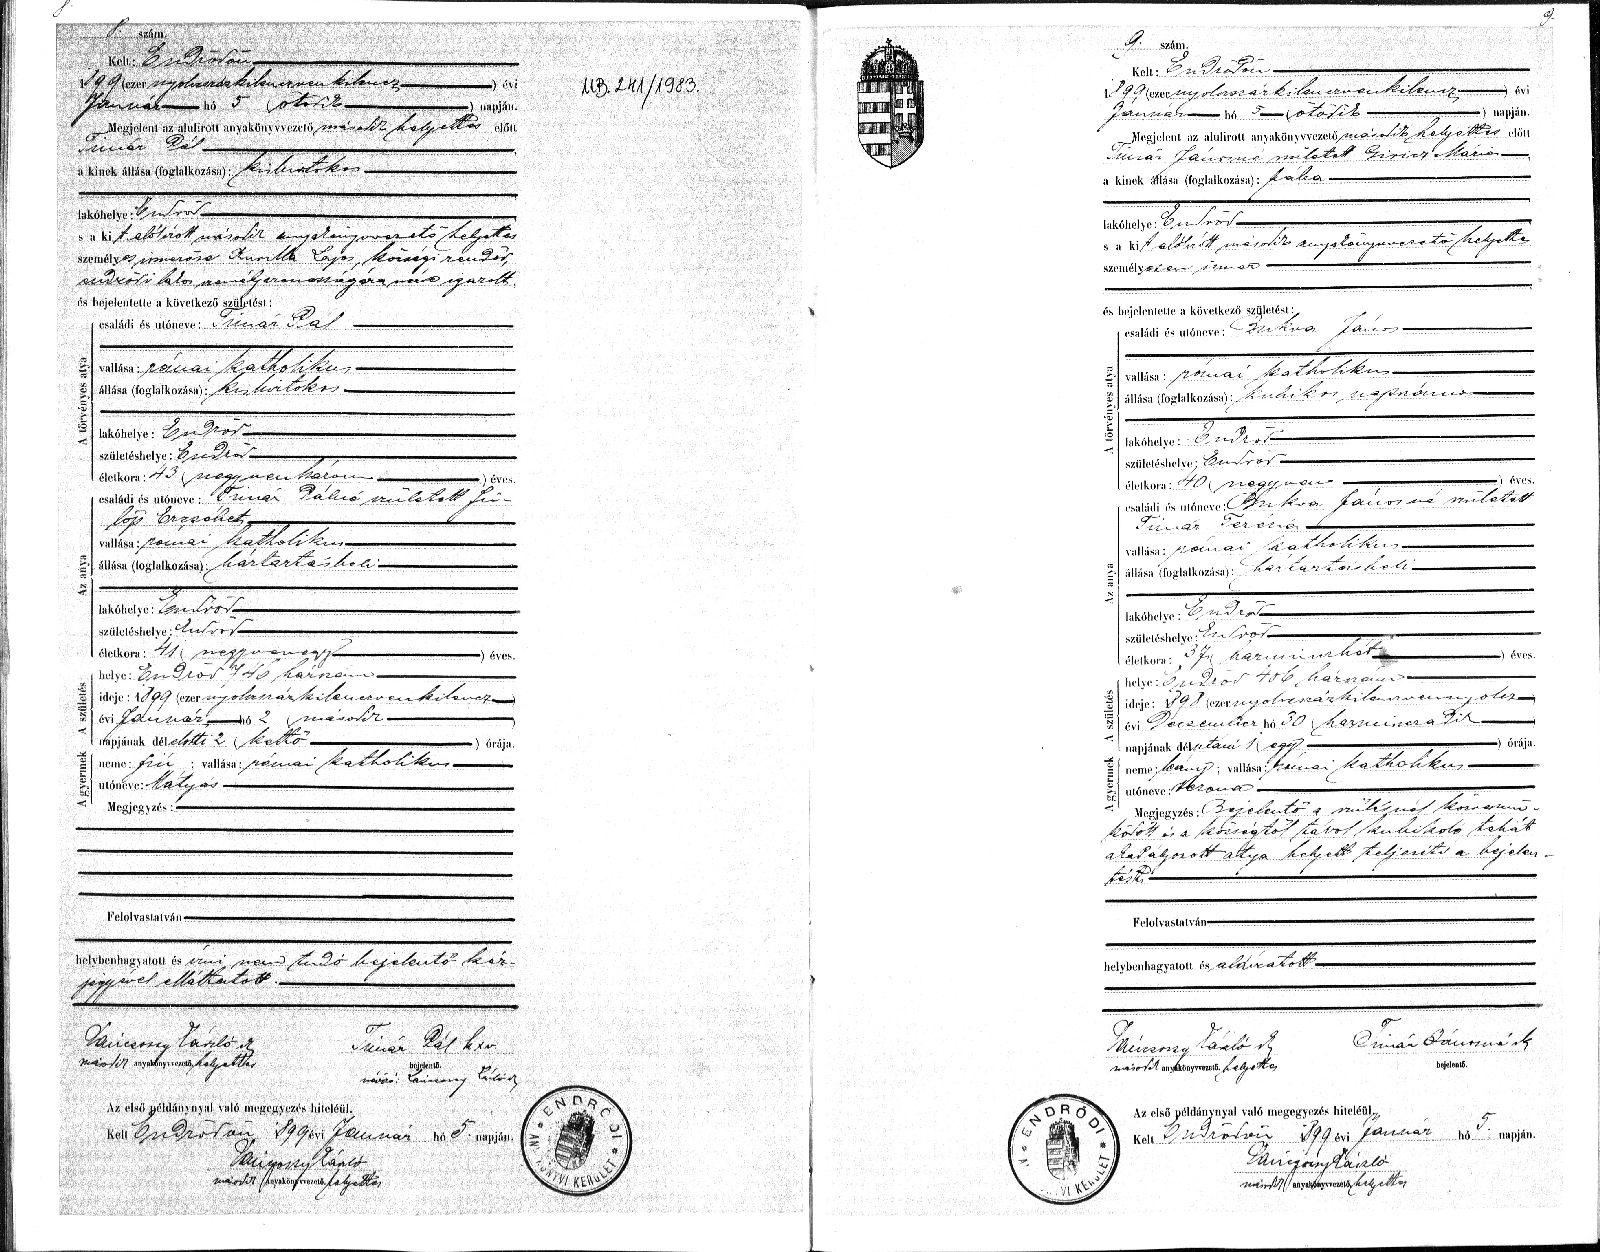 8.
8. szám.
Kelt: Endrődön
1899 (ezer nyolcszázkilencvenkilencz) évi
Január hó 5 (ötödik) napján.
Megjelent az alulirott anyakönyvvezető második helyettes előtt
Timár Pál
a kinek állása (foglalkozása): kisbirtokos
lakóhelye: Endrőd
s a kit alólirott második anyakönyvvezető helyettes
személyes ismerőse Lajos, községi rendőr
endrődi lakos személyazonosságára nézve igazolt.
és bejelentette a következő születést:
A törvényes atya
családi és utóneve: Timár Pál
vallása: római katholikus
állása (foglalkozása): kisbirtokos
lakóhelye: Endrőd
születéshelye: Endrőd
életkora: 43 (negyvenhárom) éves.
Az anya
családi és utóneve: Timár Pálné született Fü-
löp Erzsébet
vallása: római katholikus
állása (foglalkozása): háztartásbeli
lakóhelye: Endrőd
születéshelye: Endrőd
életkora: 41 (negyvenegy) éves.
A születés
helye: Endrőd 746 házszám
ideje: 1899 (ezer nyolcszázkilencvenkilencz)
évi Január hó 2 (második)
napjának délelőtti 2 (kettő) órája.
A gyermek
neme: fiú; vallása: római katholikus
utóneve: Mátyás
Megjegyzés:
Felolvastatván
helybenhagyatott és irni nem tudó bejelentő kéz-
jegyével elláttatott.
László
Timár Pál kzv.
második anyakönyvvezető helyettes
bejelentő.
Az első példánynyal való megegyezés hiteléül.
Kelt Endrődön 1899 évi Január hó 5. napján.
László
második anyakönyvvezető helyettes
ENDRŐDI KERÜLET
UB. 241/1983.
9.
9. szám.
Kelt: Endrődön
1899 (ezer nyolcszázkilencvenkilencz) évi
Január hó 5 (ötödik) napján.
Megjelent az alulirott anyakönyvvezető második helyettes előtt
Timár Jánosné született Giricz Mária
a kinek állása (foglalkozása): bába
lakóhelye: Endrőd
s a kit alólirott második anyakönyvvezető helyettes
személyesen ismer
és bejelentette a következő születést:
A törvényes atya
családi és utóneve: Bukva János
vallása: római katholikus
állása (foglalkozása): kubikos napszámos
lakóhelye: Endrőd
születéshelye: Endrőd
életkora: 40 (negyven) éves.
Az anya
családi és utóneve: Bukva Jánosné született
Timár Terézia
vallása: római katholikus
állása (foglalkozása): háztartásbeli
lakóhelye: Endrőd
születéshelye: Endrőd
életkora: 37 (harminczhét) éves.
A születés
helye: Endrőd 406 házszám
ideje: 1898 (ezer nyolcszázkilencvennyolcz)
évi Deczember hó 30 (harminczadik)
napjának délutáni 1 (egy) órája.
A gyermek
neme: leány; vallása: római katholikus
utóneve: Verona
Megjegyzés: Bejelentő a szülésnél közremü-
ködött és a községtől távol kubikoló tehát
akadályozott atya helyett teljesiti a bejelen-
tést.
Felolvastatván
helybenhagyatott és aláiratott
László
Timár Jánosné
második anyakönyvvezető helyettes
bejelentő.
Az első példánynyal való megegyezés hiteléül.
Kelt Endrődön 1899 évi Január hó 5. napján.
László
második anyakönyvvezető helyettes
ENDRŐDI KERÜLET